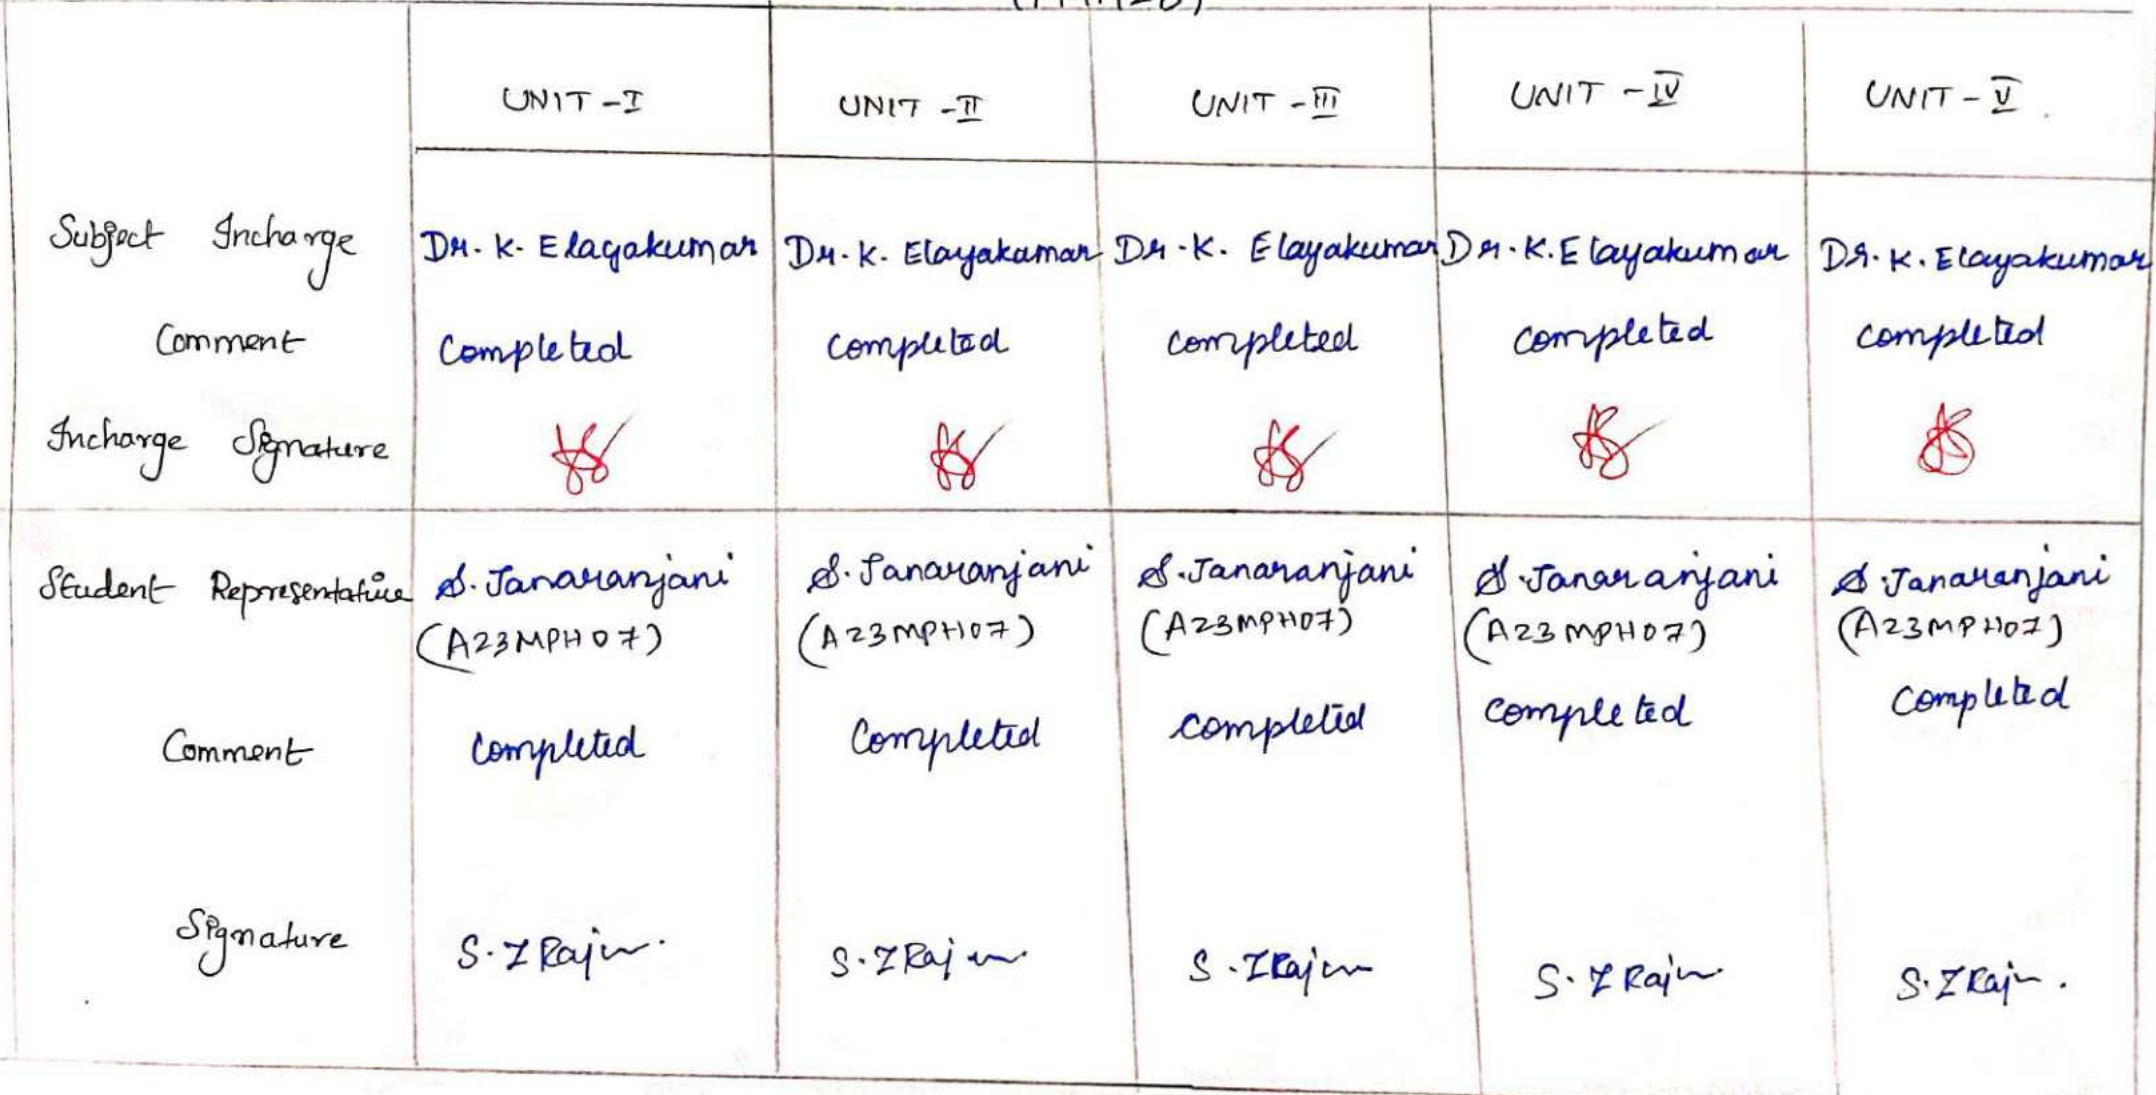 UNIT - I UNIT - II UNIT - III UNIT - IV UNIT - V
Subject Incharge Dr. K. Elayakumar Dr. K. Elayakumar Dr. K. Elayakumar Dr. K. Elayakumar Dr. K. Elayakumar
Comment Completed completed completed completed completed
Incharge Signature
Student Representative S. Janaranjani S. Janaranjani S. Janaranjani S. Janaranjani S. Janaranjani
(A23MPH07) (A23MPH07) (A23MPH07) (A23MPH07) (A23MPH07)
Comment Completed Completed completed completed Completed
Signature